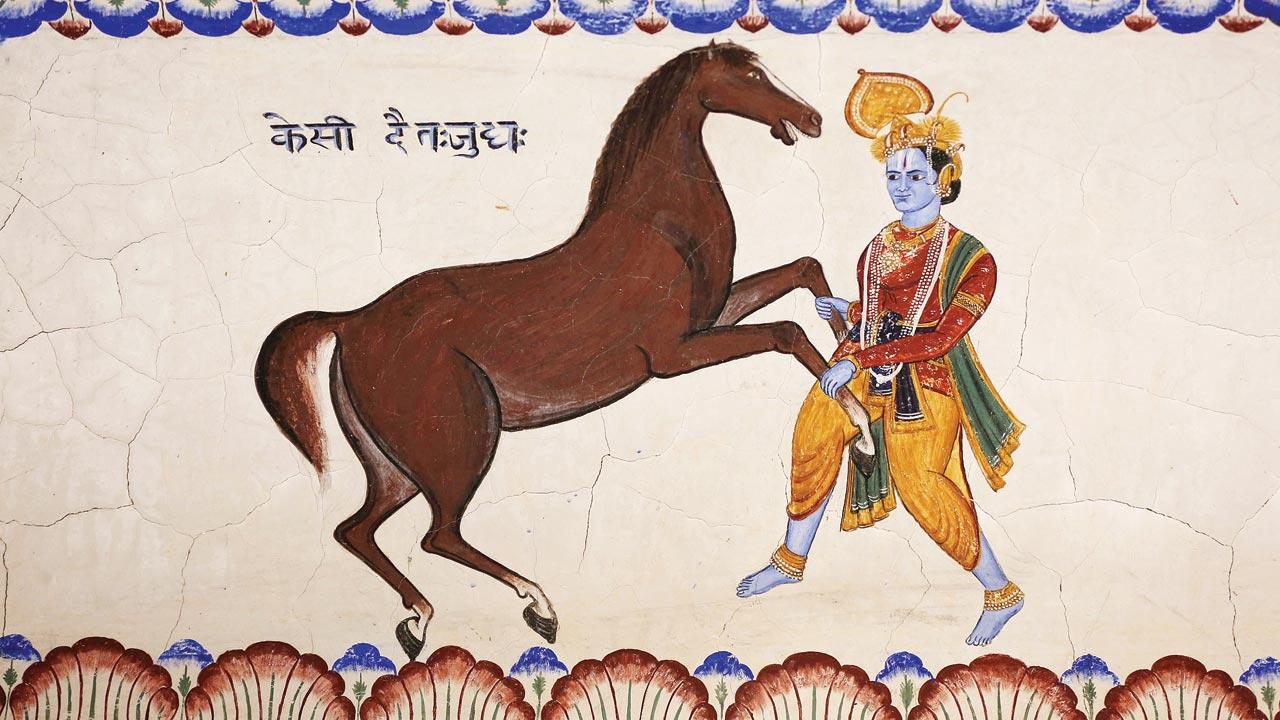 केसी दैतःजुधः